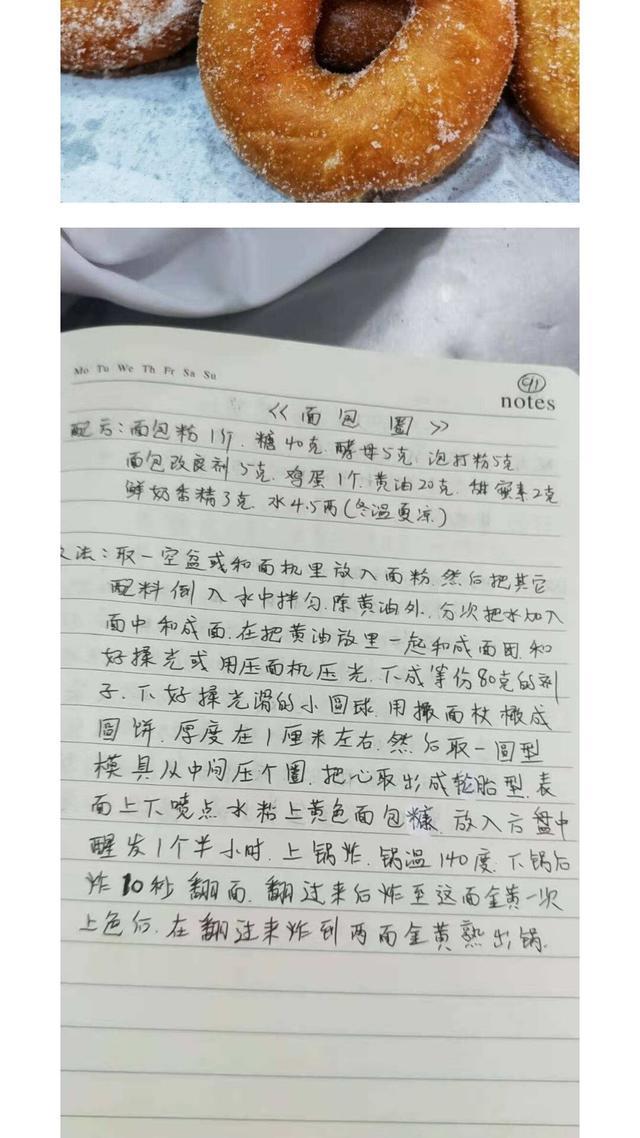 Mo Tu We Th Fr Sa Su
41
notes
<<面包圈>>
配方:面包粉1斤.糖40克.酵母5克.泡打粉5克
面包改良剂5克.鸡蛋1个.黄油20克.甜蜜素2克
鲜奶香精3克.水4.5两(冬温夏凉)
法:取一空盆或和面机里放入面粉.然后把其它
配料倒入水中拌匀.除黄油外.分次把水加入
面中和成面.在把黄油放里一起和成面团.和
好揉光或用压面机压光.下成等份80克的剂
子.下好揉光滑的小圆球.用擀面杖檊成
圆饼.厚度在1厘米左右.然后取一圆型
模具从中间压个圈.把心取出成轮胎型.表
面上下喷点水粘上黄色面包糠.放入方盘中
醒发1个半小时.上锅炸.锅温140度.下锅后
炸10秒翻面.翻过来后炸至这面金黄一次
上色后.在翻过来炸到两面金黄熟出锅.